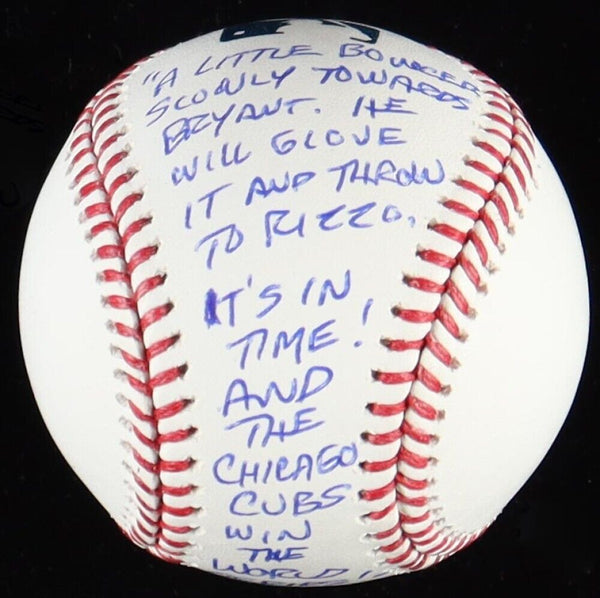 "A LITTLE BOUNCER
SLOWLY TOWARDS
BRYANT. HE
WILL GLOVE
IT AND THROW
TO RIZZO.
IT'S IN
TIME!
AND
THE
CHICAGO
CUBS
WIN
THE
WORLD